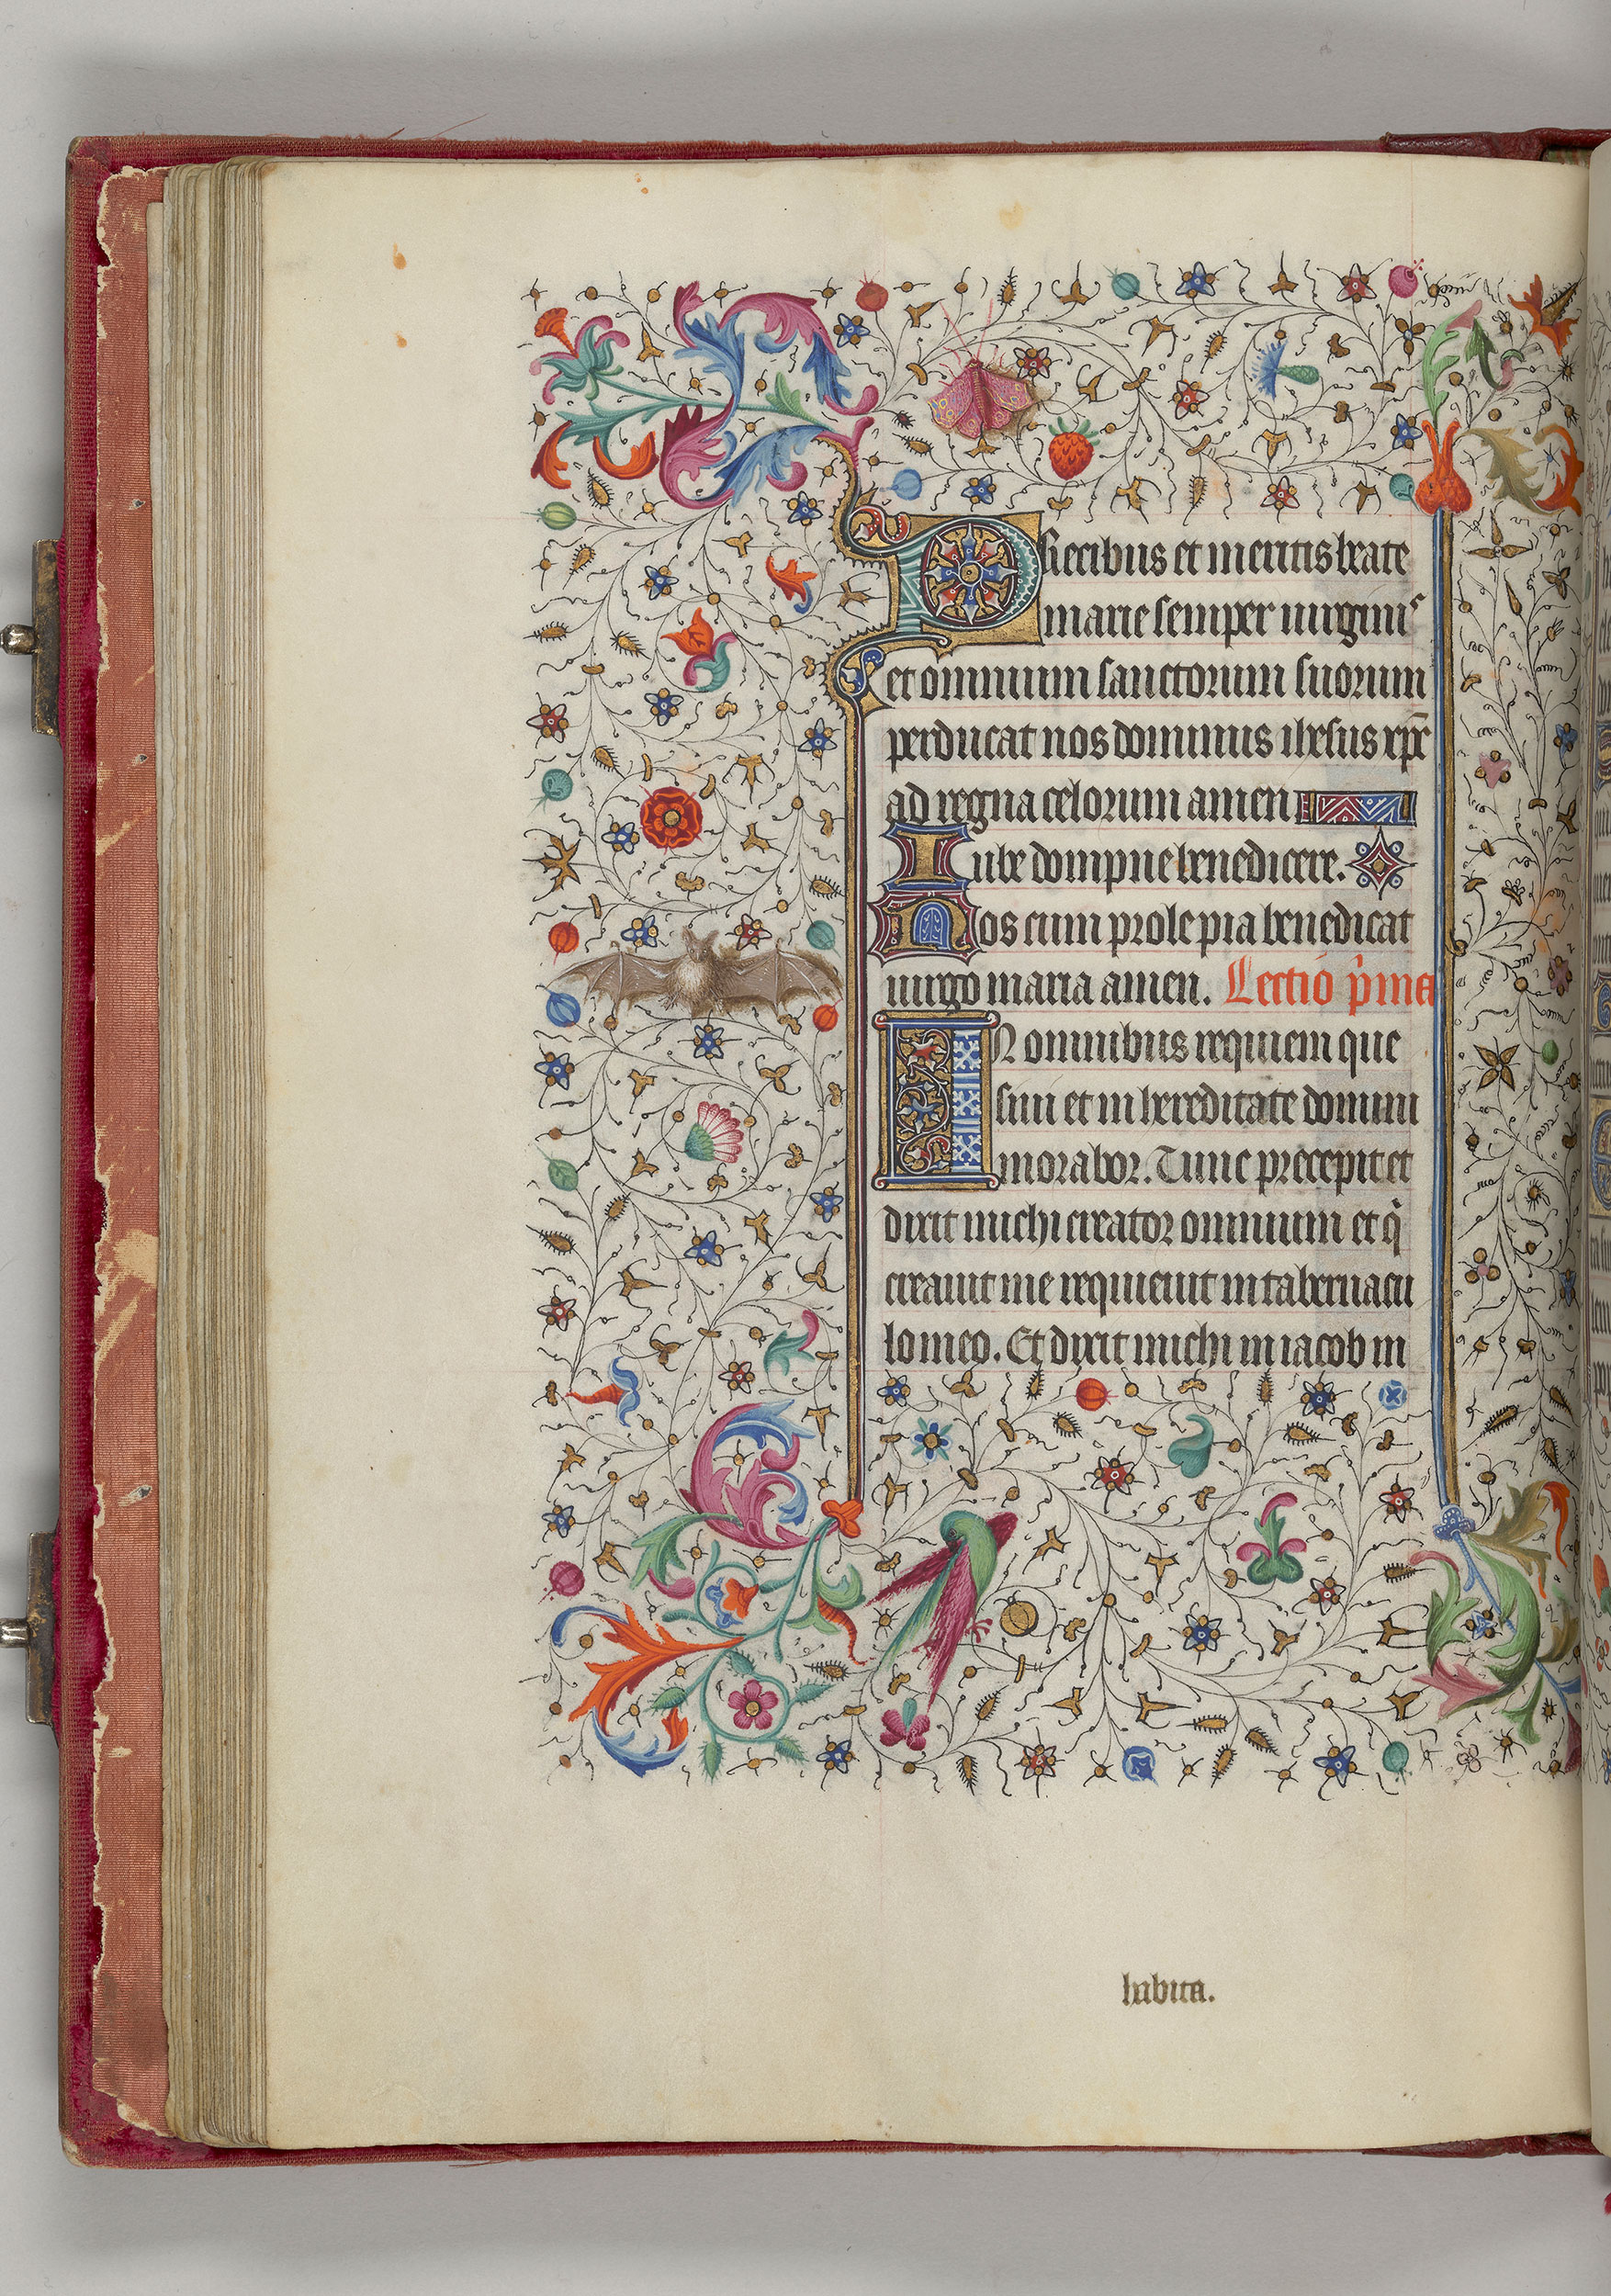 Precibus et meritis beate
marie semper uirginis
et omnium sanctorum suorum
perducat nos dominus ihesus xpc
ad regna celorum amen
Iube dompne benedicere.
Nos cum prole pia benedicat
uirgo maria amen. Lectio p'ma
IN omnibus requiem que
siui et in hereditate domini
morabor. Tunc precepit et
dixit michi creator omnium et q'
creauit me requieuit in tabernacu
lo meo. Et dixit michi in iacob in
habita.